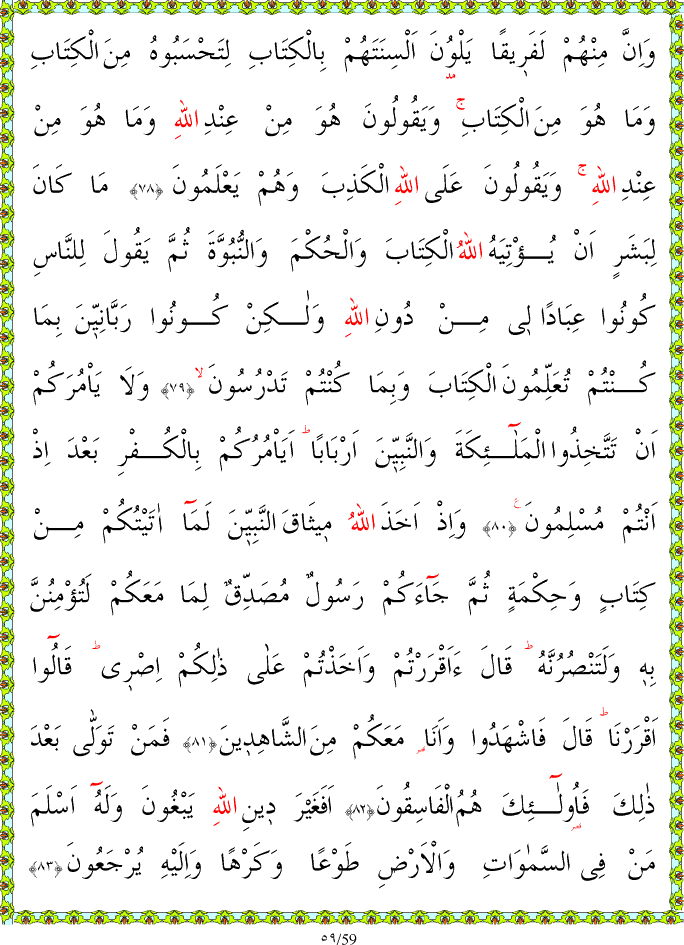 وَاِنَّ مِنْهُمْ لَفَر۪يقًا يَلْوُ۫نَ اَلْسِنَتَهُمْ بِالْكِتَابِ لِتَحْسَبُوهُ مِنَ الْكِتَابِ
وَمَا هُوَ مِنَ الْكِتَابِۚ وَيَقُولُونَ هُوَ مِنْ عِنْدِ اللّٰهِ وَمَا هُوَ مِنْ
عِنْدِ اللّٰهِۚ وَيَقُولُونَ عَلَى اللّٰهِ الْكَذِبَ وَهُمْ يَعْلَمُونَ ﴿٧٨﴾ مَا كَانَ
لِبَشَرٍ اَنْ يُؤْتِيَهُ اللّٰهُ الْكِتَابَ وَالْحُكْمَ وَالنُّبُوَّةَ ثُمَّ يَقُولَ لِلنَّاسِ
كُونُوا عِبَادًا ل۪ي مِنْ دُونِ اللّٰهِ وَلٰكِنْ كُونُوا رَبَّانِيّ۪نَ بِمَا
كُنْتُمْ تُعَلِّمُونَ الْكِتَابَ وَبِمَا كُنْتُمْ تَدْرُسُونَۙ ﴿٧٩﴾ وَلَا يَأْمُرَكُمْ
اَنْ تَتَّخِذُوا الْمَلٰٓئِكَةَ وَالنَّبِيّ۪نَ اَرْبَابًاۜ اَيَأْمُرُكُمْ بِالْكُفْرِ بَعْدَ اِذْ
اَنْتُمْ مُسْلِمُونَ۟ ﴿٨٠﴾ وَاِذْ اَخَذَ اللّٰهُ م۪يثَاقَ النَّبِيّ۪نَ لَمَٓا اٰتَيْتُكُمْ مِنْ
كِتَابٍ وَحِكْمَةٍ ثُمَّ جَٓاءَكُمْ رَسُولٌ مُصَدِّقٌ لِمَا مَعَكُمْ لَتُؤْمِنُنَّ
بِه۪ وَلَتَنْصُرُنَّهُۜ قَالَ ءَاَقْرَرْتُمْ وَاَخَذْتُمْ عَلٰى ذٰلِكُمْ اِصْر۪يۜ قَالُٓوا
اَقْرَرْنَاۜ قَالَ فَاشْهَدُوا وَاَنَا۬ مَعَكُمْ مِنَ الشَّاهِد۪ينَ ﴿٨١﴾ فَمَنْ تَوَلّٰى بَعْدَ
ذٰلِكَ فَاُو۬لٰٓئِكَ هُمُ الْفَاسِقُونَ ﴿٨٢﴾ اَفَغَيْرَ د۪ينِ اللّٰهِ يَبْغُونَ وَلَهُٓ اَسْلَمَ
مَنْ فِي السَّمٰوَاتِ وَالْاَرْضِ طَوْعًا وَكَرْهًا وَاِلَيْهِ يُرْجَعُونَ ﴿٨٣﴾
٥٩/59